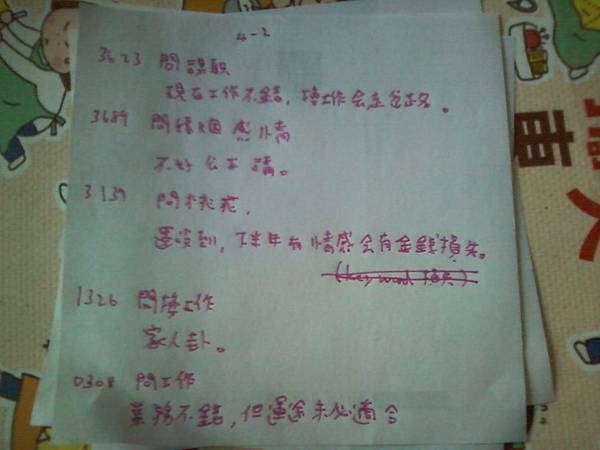 4-2
3623 問謀職
現在工作不錯，換工作會走岔路。
3689 問婚姻感情
不好公开講。
3139 問桃花，
還没到，下半年有情感会有金錢損失。
(key word 損失)
1326 問換工作
家人卦。
0308 問工作
業務不錯，但遠途未必適合